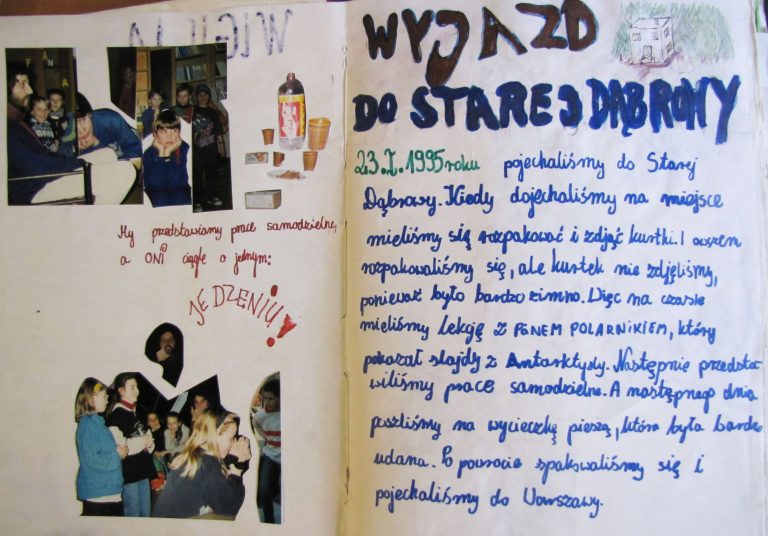 WIGILIA
My przedstawiamy prace samodzielne,
a ONI ciągle o jednym:
JEDZENIU!
WYJAZD
DO STAREJ DĄBROWY
23.I.1995 roku pojechaliśmy do Starej
Dąbrowy. Kiedy dojechaliśmy na miejsce
mieliśmy się rozpakować i zdjąć kurtki. I owszem
rozpakowaliśmy się, ale kurtek nie zdjęliśmy,
ponieważ było bardzo zimno. Więc na czasie
mieliśmy lekcję z PANEM POLARNIKIEM, który
pokazał slajdy z Antarktydy. Następnie przedsta-
wiliśmy prace samodzielne. A następnego dnia
poszliśmy na wycieczkę pieszą, która była bardzo
udana. Po powrocie spakowaliśmy się i
pojechaliśmy do Warszawy.